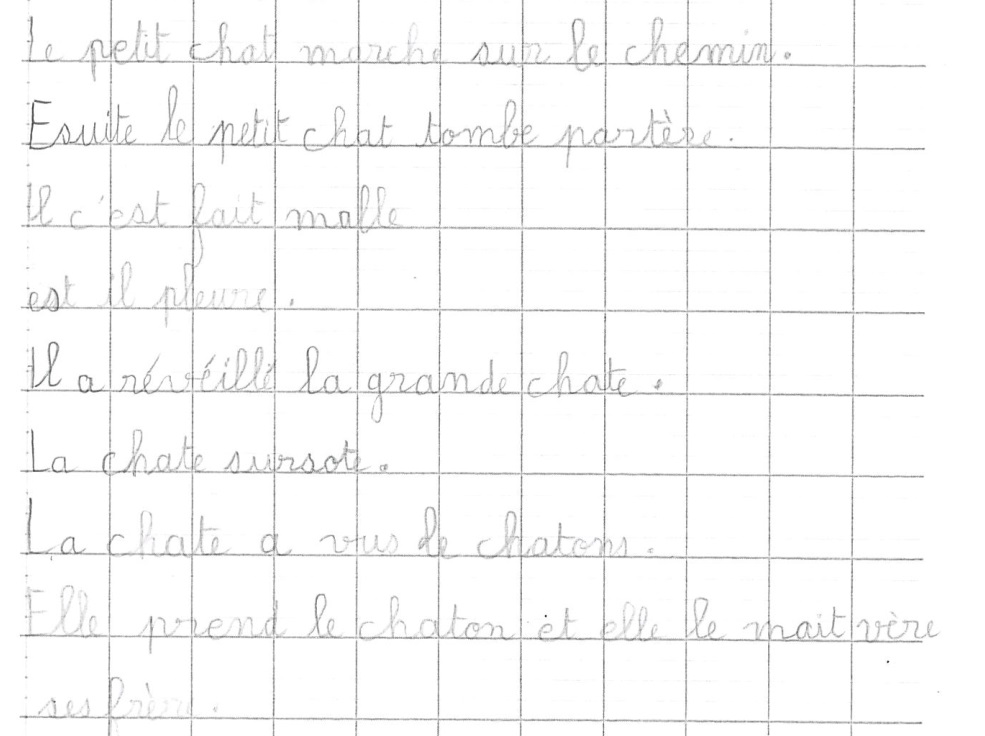 Le petit chat marche sur le chemin.
Esuite le petit chat tombe partère.
Il c'est fait malle
est il pleure.
Il a révéillé la grande chate.
La chate sursote.
La chate a vus le chatons.
Elle prend le chaton et elle le mait vère
ses frère.